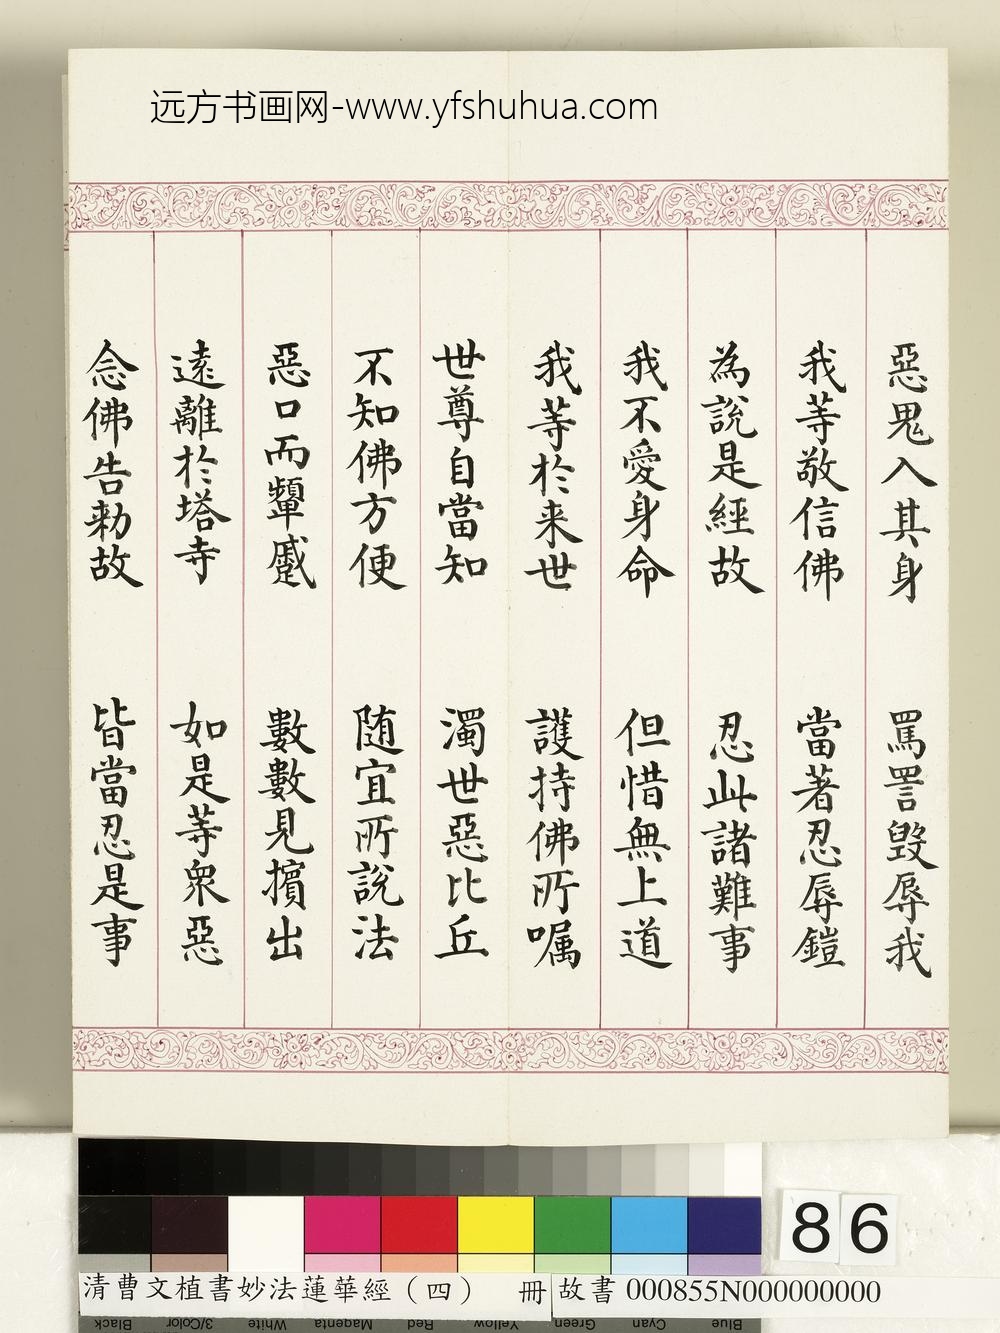 远方书画网-www.yfshuhua.com
惡鬼入其身 罵詈毀辱我
我等敬信佛 當著忍辱鎧
為說是經故 忍此諸難事
我不愛身命 但惜無上道
我等於来世 護持佛所嘱
世尊自當知 濁世惡比丘
不知佛方便 随宜所說法
惡口而顰蹙 數數見擯出
遠離於塔寺 如是等衆惡
念佛告勅故 皆當忍是事
86
清曹文植書妙法蓮華經（四） 冊
故書 000855N000000000
Black 3/Color White Magenta Red Yellow Green Cyan Blue